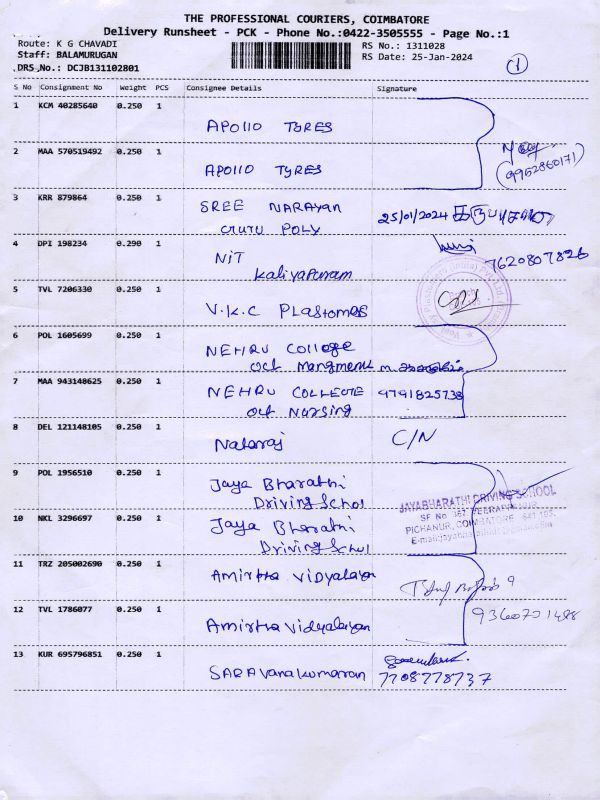 THE PROFESSIONAL COURIERS, COIMBATORE
Delivery Runsheet - PCK - Phone No.:0422-3505555 - Page No.:1
Route: K G CHAVADI
RS No.: 1311028
Staff: BALAMURUGAN
RS Date: 25-Jan-2024
DRS No.: DCJB131102801
1
S No Consignment No Weight PCS Consignee Details Signature
1 KCM 40285640 0.250 1
APOllO TYRES
2 MAA 570519492 0.250 1
(9952860171)
APOllO TYRES
3 KRR 879864 0.250 1
SREE NARAYAN
25/01/2024
GURU POLY
4 DPI 198234 0.290 1
NIT
7620807826
Kaliyapuram
5 TVL 7206330 0.250 1
V.K.C PLASTOMES
6 POL 1605699 0.250 1
NEHRU COllege
oct Mangment
7 MAA 943148625 0.250 1
NEHRU COLLECTE 9791825738
oct Nursing
8 DEL 121148105 0.250 1
Nataraj C/N
9 POL 1956510 0.250 1
Jaya Bharathi
Driving Schol
JAYABHARATHI DRIVING SCHOOL
10 NKL 3296697 0.250 1
Jaya Bharathi
PICHANUR, COIMBATORE - 641 105.
Driving Schol
11 TRZ 205002690 0.250 1
Amirtha Vidyalaya
12 TVL 1786077 0.250 1
9360701488
Amirtha Vidyalayan
13 KUR 695796851 0.250 1
SARAVanakumaran 7708778737